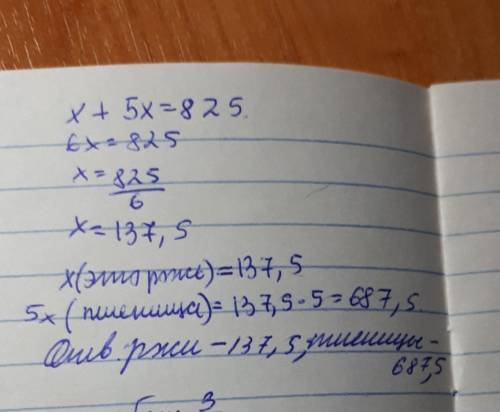 x + 5x = 825.
6x = 825
x = 825/6
x = 137,5
x (это рожь) = 137,5
5x (пшеница) = 137,5 · 5 = 687,5.
Отв. ржи – 137,5, пшеницы –
687,5
3